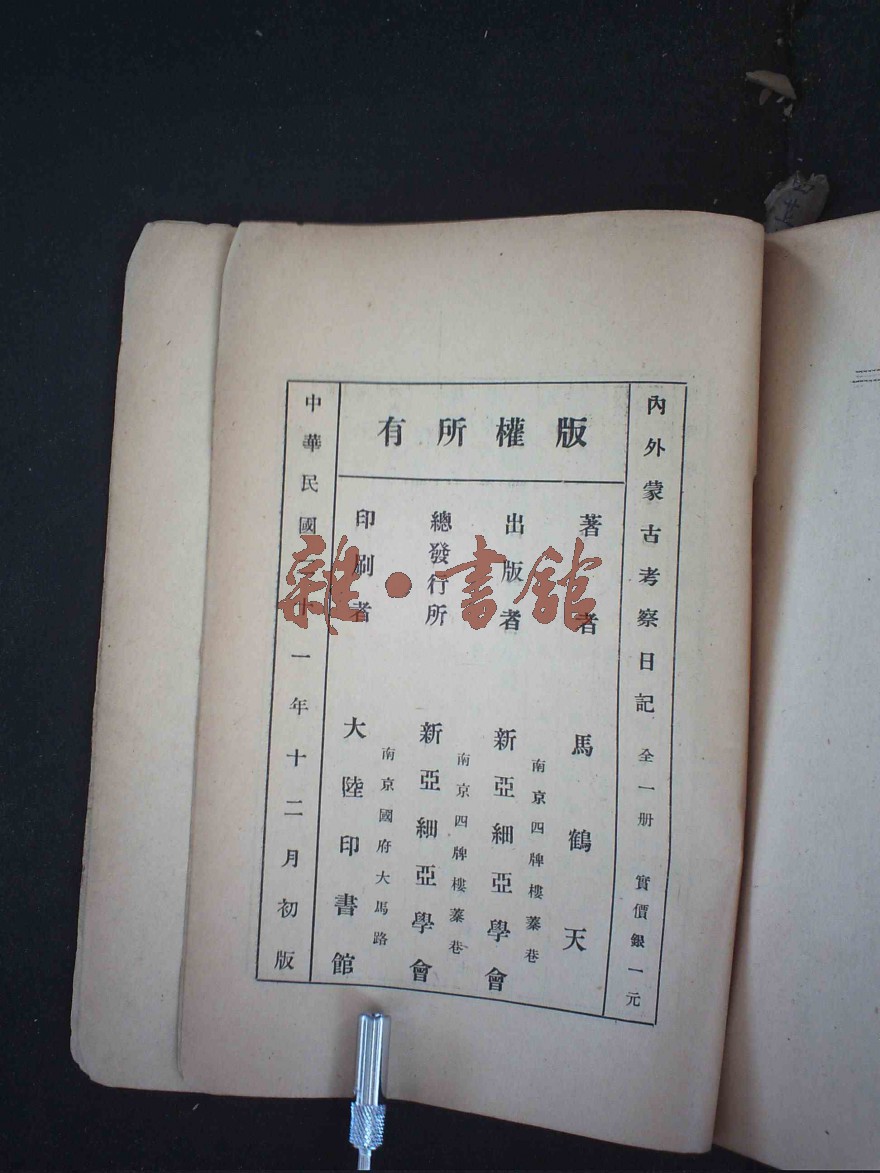 內外蒙古考察日記 全一册 實價銀一元
版權所有
著者 馬鶴天
出版者 新亞細亞學會
南京四牌樓蓁巷
總發行所 新亞細亞學會
南京四牌樓蓁巷
印刷者 大陸印書館
南京國府大馬路
中華民國二十一年十二月初版
雜·書館